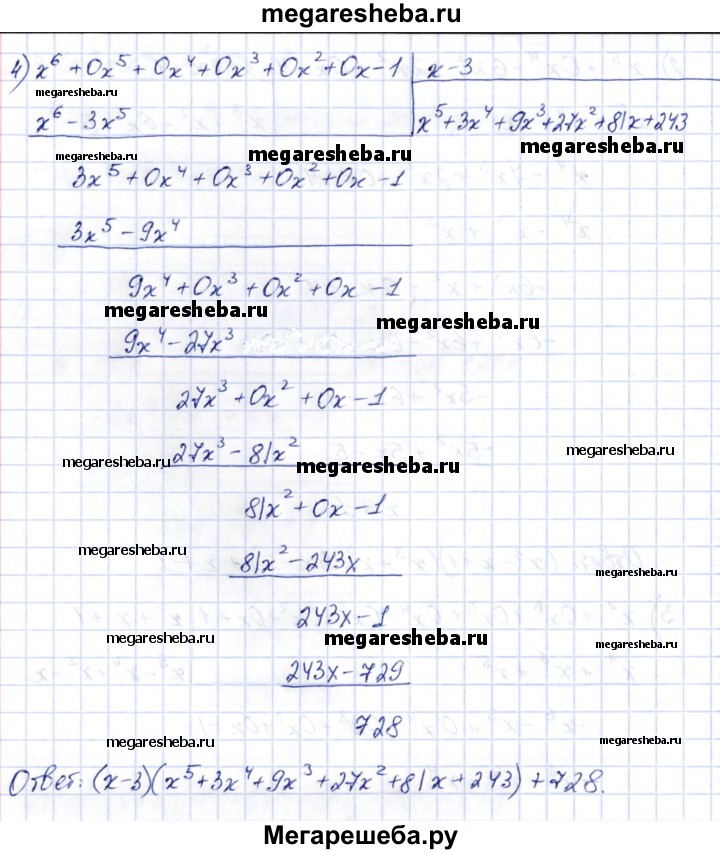 megaresheba.ru
4) x⁶ + 0x⁵ + 0x⁴ + 0x³ + 0x² + 0x - 1 | x - 3
megaresheba.ru
x⁶ - 3x⁵ x⁵ + 3x⁴ + 9x³ + 27x² + 81x + 243
megaresheba.ru megaresheba.ru megaresheba.ru
3x⁵ + 0x⁴ + 0x³ + 0x² + 0x - 1
3x⁵ - 9x⁴
9x⁴ + 0x³ + 0x² + 0x - 1
megaresheba.ru megaresheba.ru
9x⁴ - 27x³
27x³ + 0x² + 0x - 1
27x³ - 81x² megaresheba.ru
megaresheba.ru megaresheba.ru
81x² + 0x - 1
megaresheba.ru
81x² - 243x megaresheba.ru
243x - 1
megaresheba.ru megaresheba.ru megaresheba.ru
243x - 729
728
megaresheba.ru megaresheba.ru
Ответ: (x - 3)(x⁵ + 3x⁴ + 9x³ + 27x² + 81x + 243) + 728.
Мегарешеба.ру